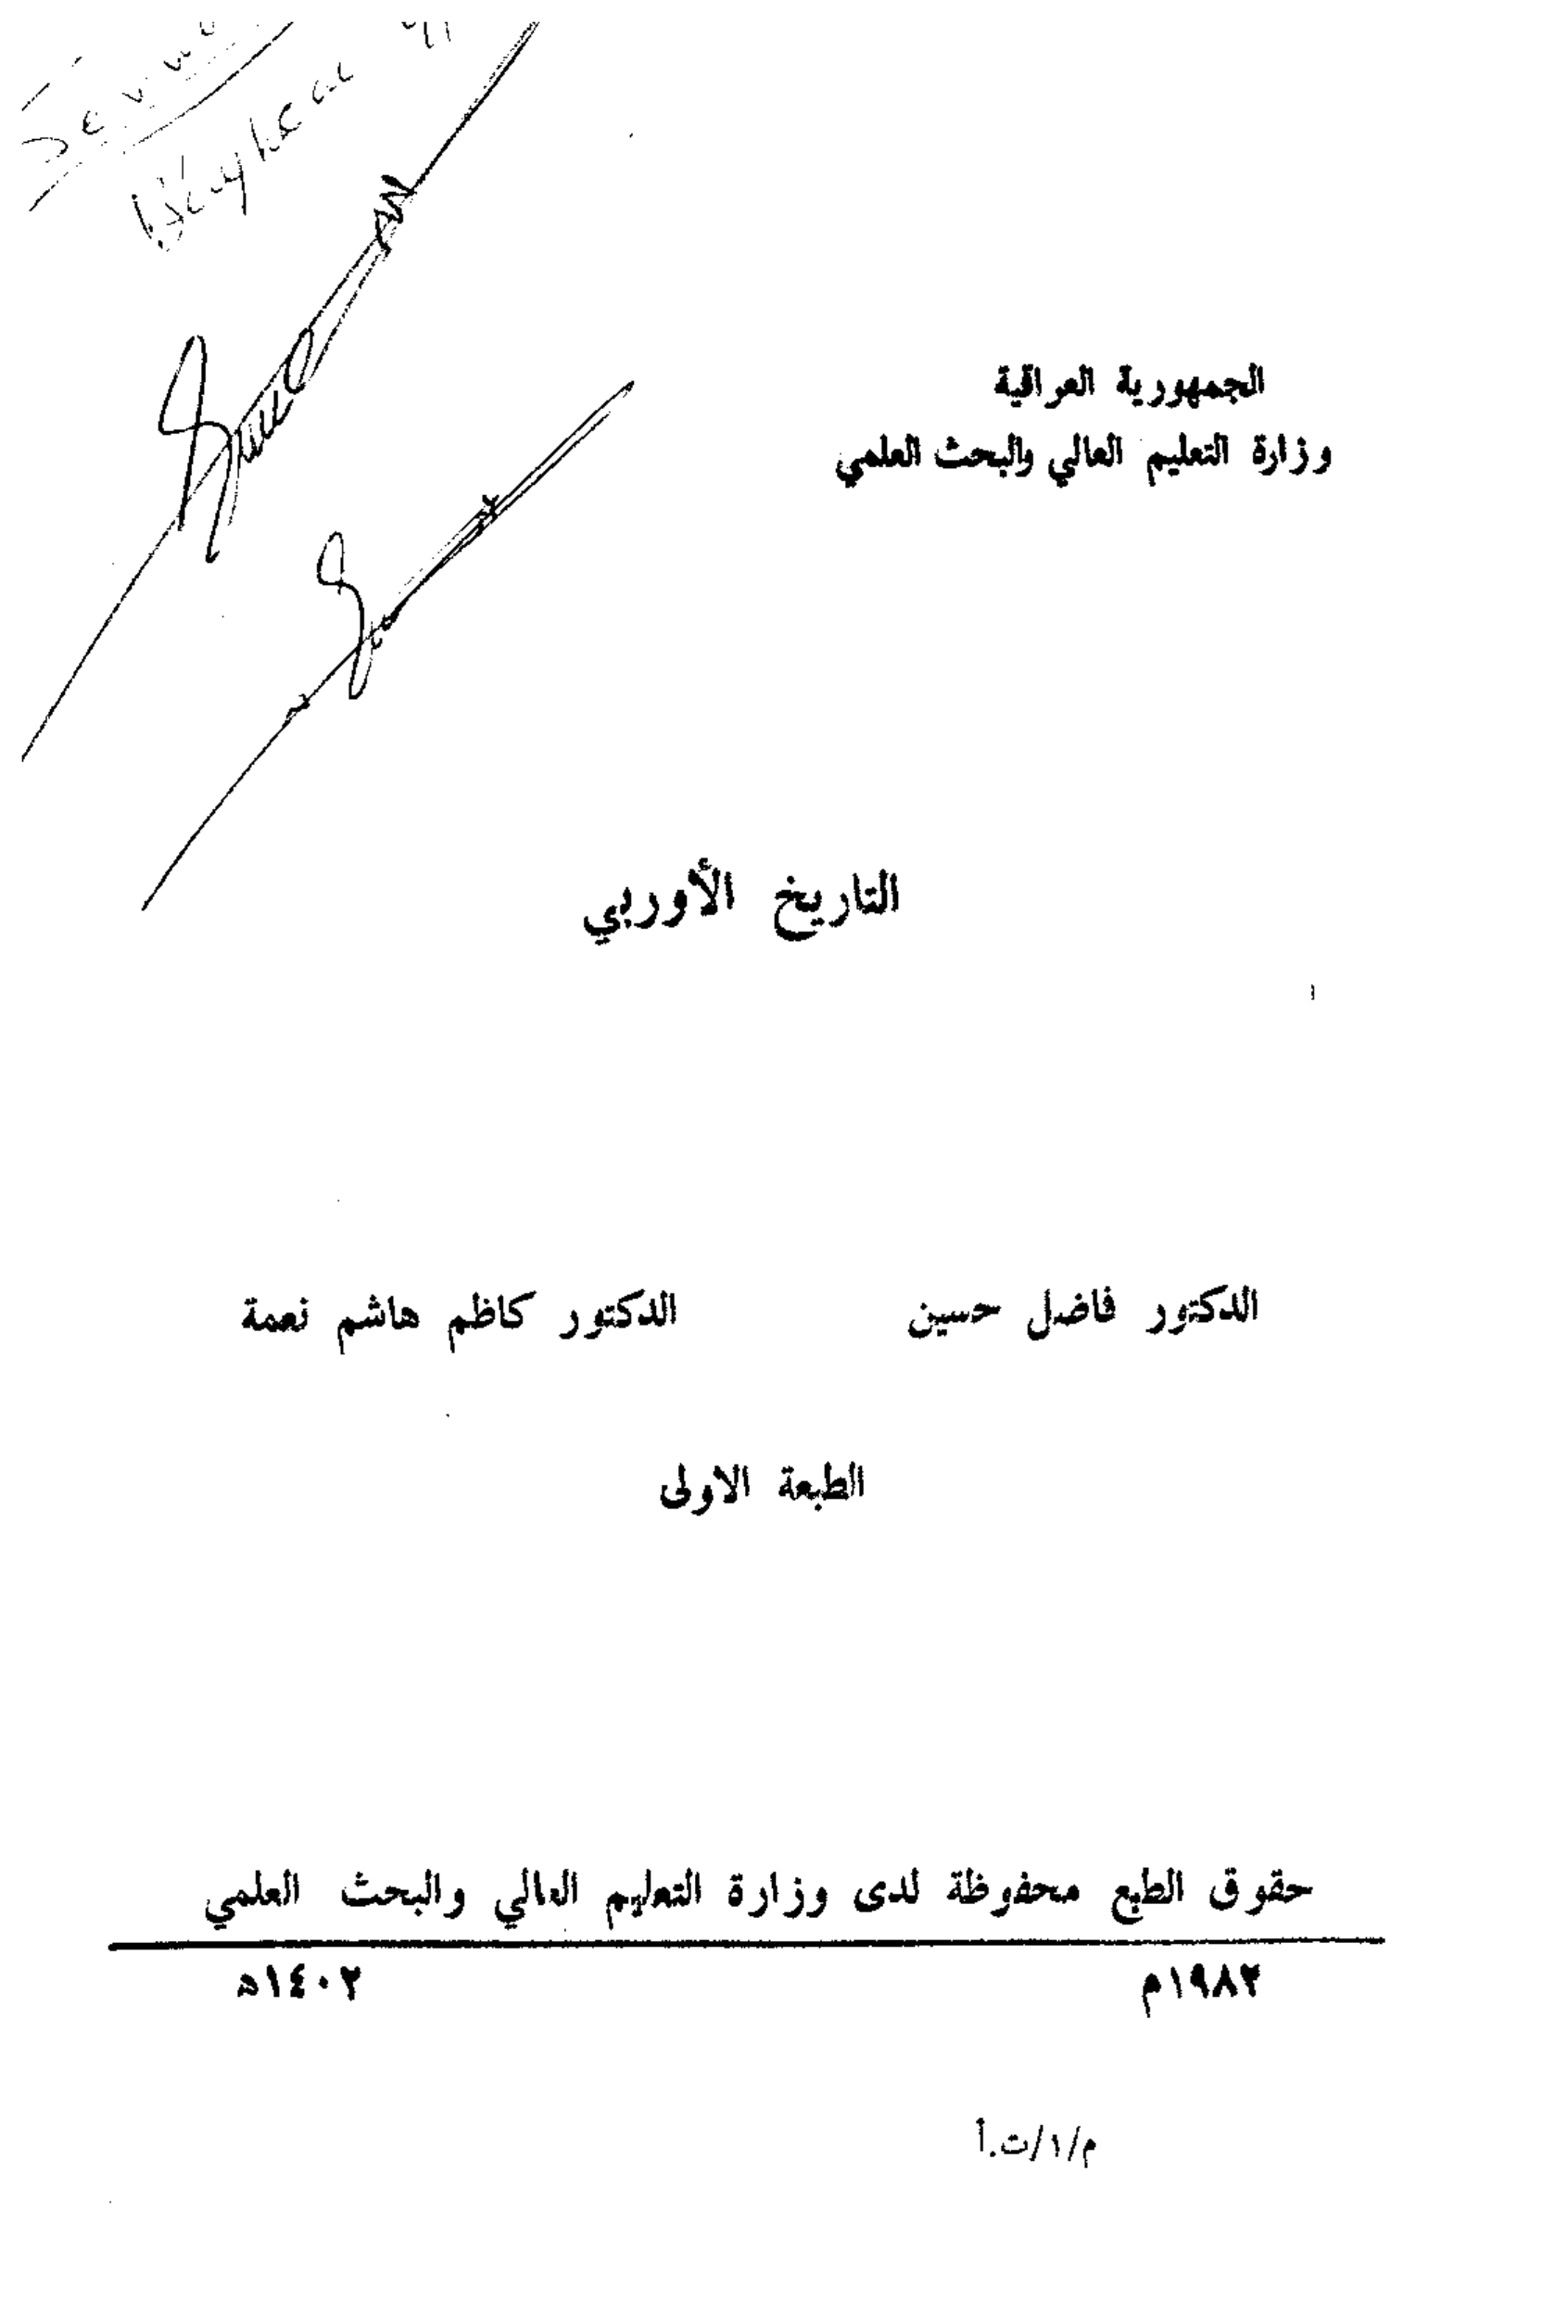 الجمهورية العراقية
وزارة التعليم العالي والبحث العلمي
التاريخ الأوربي
الدكتور فاضل حسين الدكتور كاظم هاشم نعمة
الطبعة الاولى
حقوق الطبع محفوظة لدى وزارة التعليم العالي والبحث العلمي
١٩٨٢م ١٤٠٢ه
م/١/ت.أ